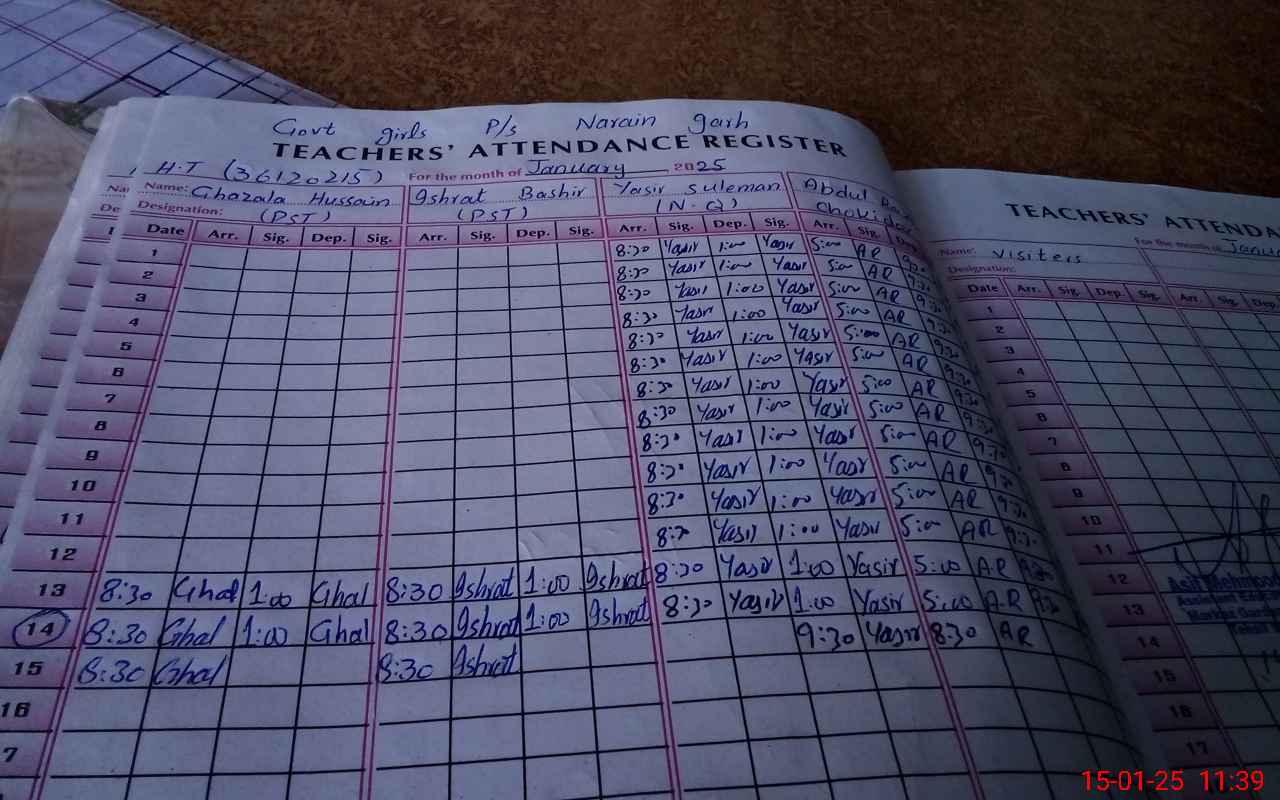 Govt girls P/s Narain garh
TEACHERS' ATTENDANCE REGISTER
H.T (36120215) For the month of January 2025
Name: Ghazala Hussain Ishrat Bashir Yasir Suleman Abdul
Designation: (PST) (PST) (N.Q) Chokidar
Date Arr. Sig. Dep. Sig. Arr. Sig. Dep. Sig. Arr. Sig. Dep. Sig. Arr. Sig. De
1 8:30 Yasir 1:00 Yasir 5:00 AR 9:30
2 8:30 Yasir 1:00 Yasir 5:00 AR 9:30
3 8:30 Yasir 1:00 Yasir 5:00 AR 9:30
4 8:30 Yasir 1:00 Yasir 5:00 AR 9:30
5 8:30 Yasir 1:00 Yasir 5:00 AR 9:30
6 8:30 Yasir 1:00 Yasir 5:00 AR 9:30
7 8:30 Yasir 1:00 Yasir 5:00 AR 9:30
8 8:30 Yasir 1:00 Yasir 5:00 AR 9:30
9 8:30 Yasir 1:00 Yasir 5:00 AR 9:30
10 8:30 Yasir 1:00 Yasir 5:00 AR 9:30
11 8:30 Yasir 1:00 Yasir 5:00 AR 9:30
12 8:30 Yasir 1:00 Yasir 5:00 AR 9:30
13 8:30 Ghal 1:00 Ghal 8:30 Ishrat 1:00 Ishrat 8:30 Yasir 1:00 Yasir 5:00 A.R
14 8:30 Ghal 1:00 Ghal 8:30 Ishrat 1:00 Ishrat 8:30 Yasir 1:00 Yasir 5:00 A.R 9:30
15 8:30 Ghal 8:30 Ishrat 9:30 Yasir 8:30 AR
16
7
TEACHERS' ATTENDA
For the month of Janu
Name: Visiters
Designation:
Date Arr. Sig. Dep. Sig. Arr. Sig. Dep.
1
2
3
4
5
6
7
8
9
10
11
12 Asif Mehmood
13 Assistant Educa
14
15
16
17
15-01-25 11:39